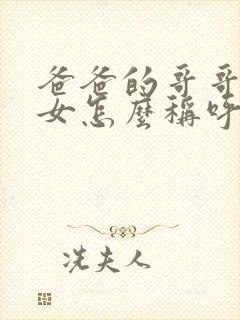 爸爸的哥哥
女怎麼稱呼
冼夫人